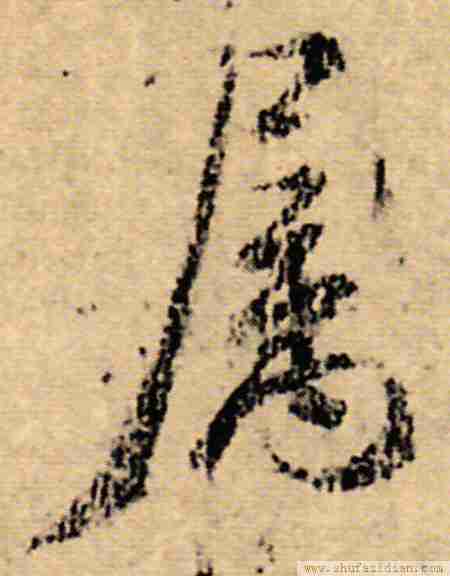 属
www.shufazidian.com